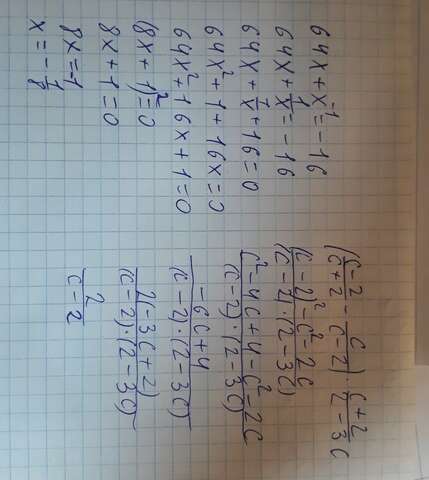 64x + x⁻¹ = -16
64x + 1/x = -16
64x + 1/x + 16 = 0
64x² + 1 + 16x = 0
64x² + 16x + 1 = 0
(8x + 1)² = 0
8x + 1 = 0
8x = -1
x = -1/8
((c-2)/(c+2) - c/(c-2)) · (c+2)/(2-3c)
((c-2)² - c² - 2c)/((c-2)·(2-3c))
(c² - 4c + 4 - c² - 2c)/((c-2)·(2-3c))
(-6c + 4)/((c-2)·(2-3c))
2(-3c+2)/((c-2)·(2-3c))
2/(c-2)